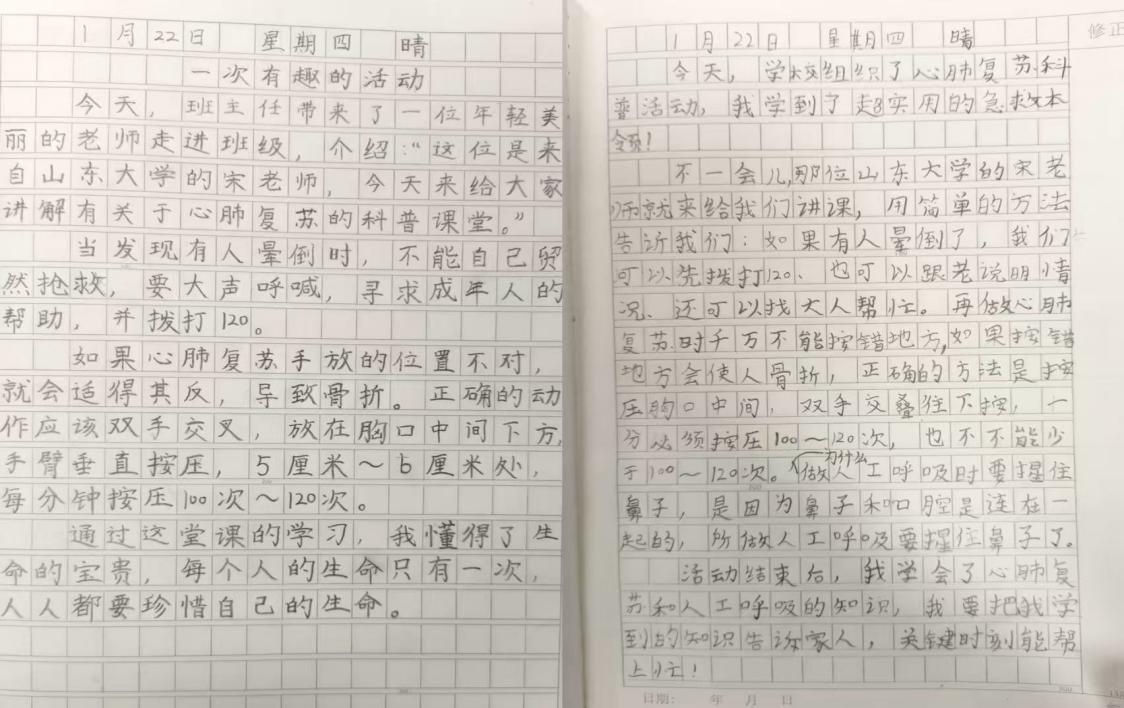 1月22日 星期四 晴
一次有趣的活动
今天，班主任带来了一位年轻美
丽的老师走进班级，介绍：“这位是来
自山东大学的宋老师，今天来给大家
讲解有关于心肺复苏的科普课堂。”
当发现有人晕倒时，不能自己贸
然抢救，要大声呼喊，寻求成年人的
帮助，并拨打120。
如果心肺复苏手放的位置不对，
就会适得其反，导致骨折。正确的动
作应该双手交叉，放在胸口中间下方，
手臂垂直按压，5厘米～6厘米处，
每分钟按压100次～120次。
通过这堂课的学习，我懂得了生
命的宝贵，每个人的生命只有一次，
人人都要珍惜自己的生命。
修正
1月22日 星期四 晴
今天，学校组织了心肺复苏科
普活动，我学到了超实用的急救本
领！
不一会儿，那位山东大学的宋老
师就来给我们讲课，用简单的方法
告诉我们：如果有人晕倒了，我们
可以先拨打120、也可以跟老说明情
况、还可以找大人帮忙。再做心肺
复苏时千万不能按错地方，如果按错
地方会使人骨折，正确的方法是按
压胸口中间，双手交叠往下按，一
分必须按压100～120次，也不不能少
于100～120次。为什么做人工呼吸时要捏住
鼻子，是因为鼻子和口腔是连在一
起的，所做人工呼吸要捏住鼻子了。
活动结束后，我学会了心肺复
苏和人工呼吸的知识，我要把我学
到的知识告诉家人，关键时刻能帮
上忙！
日期： 年 月 日